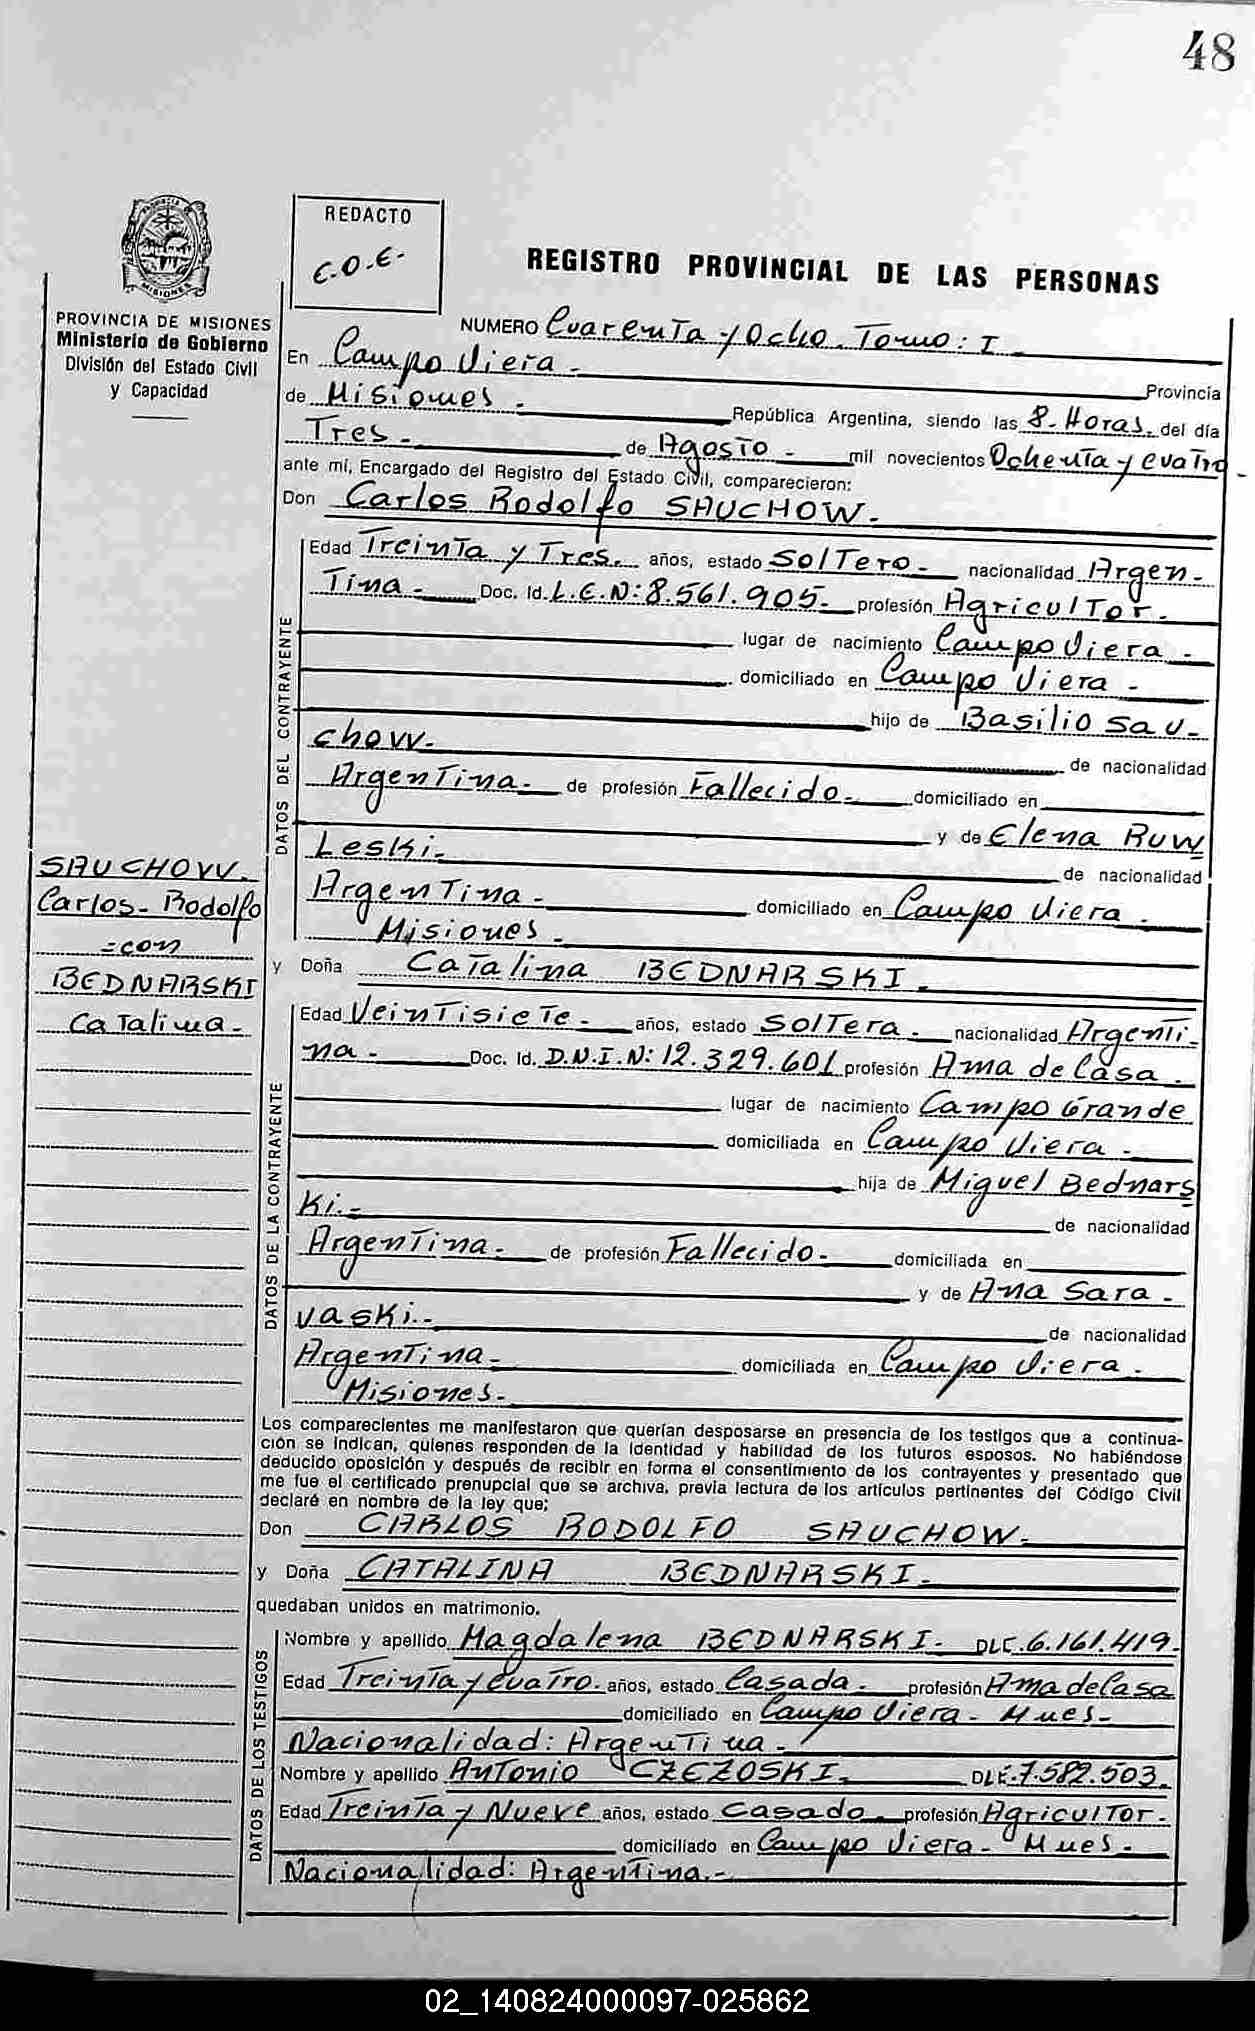 48
REDACTO
C.O.E.
REGISTRO PROVINCIAL DE LAS PERSONAS
PROVINCIA DE MISIONES
Ministerio de Gobierno
División del Estado Civil
y Capacidad
NUMERO Cuarenta y Ocho. Tomo: I
En Campo Viera - Provincia
de Misiones - República Argentina, siendo las 8-Horas. del día
Tres - de Agosto - mil novecientos Ochenta y cuatro -
ante mí, Encargado del Registro del Estado Civil, comparecieron:
Don Carlos Rodolfo SAUCHOW.-
DATOS DEL CONTRAYENTE
Edad Treinta y Tres. años, estado Soltero - nacionalidad Argen-
Tina - Doc. Id. L.E.N:8.561.905- profesión Agricultor.
lugar de nacimiento Campo Viera -
domiciliado en Campo Viera -
hijo de Basilio Sau-
chow- de nacionalidad
Argentina- de profesión Fallecido- domiciliado en
y de Elena Ruw
Leski- de nacionalidad
Argentina - domiciliado en Campo Viera -
Misiones -
SAUCHOW.
Carlos- Rodolfo
=con
BEDNARSKI
Catalina-
y Doña Catalina BEDNARSKI -
DATOS DE LA CONTRAYENTE
Edad Veintisiete - años, estado Soltera - nacionalidad Argenti-
na - Doc. Id. D.N.I.N:12.329.601 profesión Ama de Casa -
lugar de nacimiento Campo Grande
domiciliada en Campo Viera -
hija de Miguel Bednars
ki.- de nacionalidad
Argentina- de profesión Fallecido- domiciliada en
y de Ana Sara -
vaski.- de nacionalidad
Argentina- domiciliada en Campo Viera -
Misiones-
Los comparecientes me manifestaron que querían desposarse en presencia de los testigos que a continua-
ción se indican, quienes responden de la identidad y habilidad de los futuros esposos. No habiéndose
deducido oposición y después de recibir en forma el consentimiento de los contrayentes y presentado que
me fue el certificado prenupcial que se archiva, previa lectura de los artículos pertinentes del Código Civil
declaré en nombre de la ley que;
Don CARLOS RODOLFO SAUCHOW-
y Doña CATALINA BEDNARSKI-
quedaban unidos en matrimonio.
DATOS DE LOS TESTIGOS
Nombre y apellido Magdalena BEDNARSKI- DLC.6.161.419-
Edad Treinta y cuatro. años, estado Casada - profesión Ama de Casa
domiciliado en Campo Viera - Mnes-
Nacionalidad: Argentina -
Nombre y apellido Antonio CZEZOSKI- DLE.7.582.503-
Edad Treinta y Nueve años, estado Casado - profesión Agricultor -
domiciliado en Campo Viera - Mnes -
Nacionalidad: Argentina.-
02_140824000097-025862